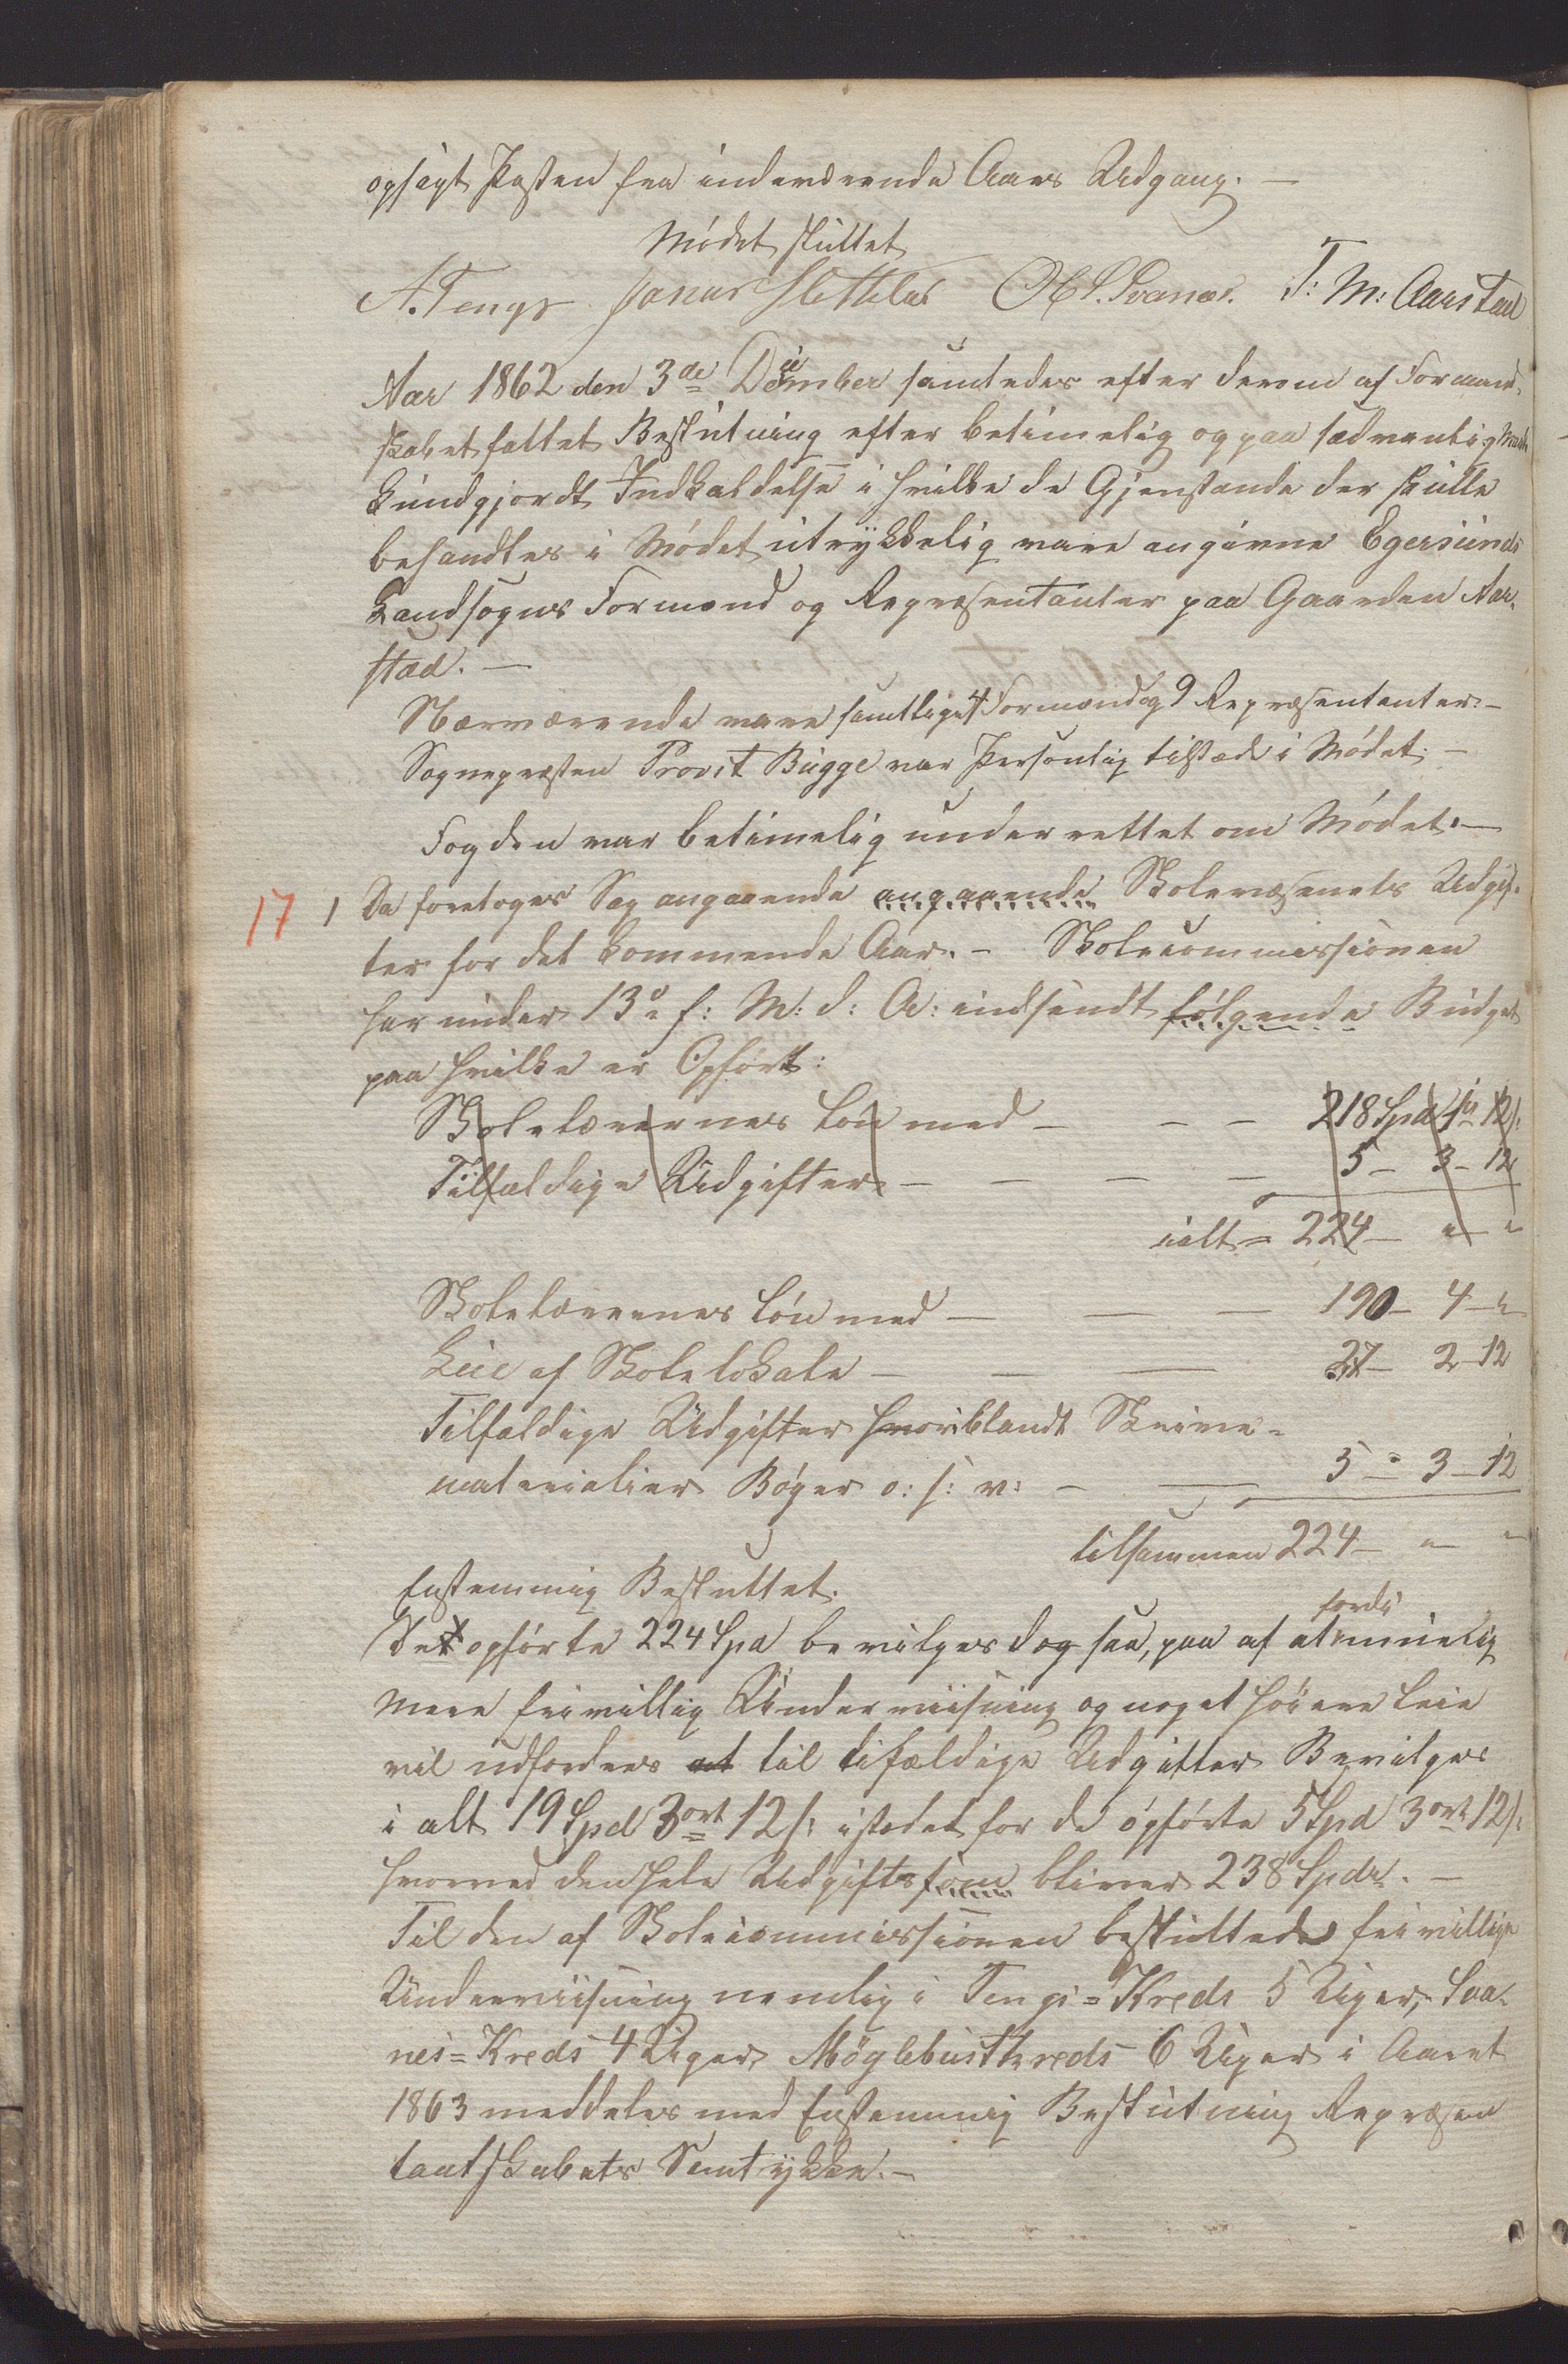 opsigt Posten fra indeværende Aars Udgang. —
Mødet sluttet
A. Tengs Jonas Slettebø Ole P. Svanæs. T: M: Aarstad
Aar 1862 den 3de December samledes efter derom af Formand-
skabet fattet Beslutning efter betimelig og paa sædvanlig Maade
kundgjordt Indkaldelse i hvilke de Gjenstande der skulle
behandles i Mødet utrykkelig vare angivne Egersunds
Landsogns Formænd og Repræsentanter paa Gaarden Aar-
stad. —
Nærværende vare samtlige 4 Formænd og 9 Repræsentanter. —
Sognepræsten Provst Bugge var Personlig tilstæde i Mødet. —
Fogden var betimelig underrettet om Mødet. —
17 1 Da foretoges Sag angaaende angaaende Skolevæsenets Udgif-
ter for det kommende Aar. — Skolecommissionen
har under 13de f: M: d: A: indsendt følgende Budget
paa hvilke er Opført:
Skolelærernes Løn med — — — 218 Spd 1 ort 12 s:
Tilfældige Udgifter — — — — 5 — 3 — 12
ialt = 224 — " "
Skolelærernes Løn med — — — 190 — 4 — "
Leie af Skolelokale — — — 27 — 2 — 12
Tilfældige Udgifter hvoriblandt Skrive-
materialier Bøger o: s: v: — — 5 — 3 — 12
tilsammen 224 — " "
Enstemmig Besluttet.
De opførte 224 Spd bevilges dog saa, paa af at fordi muelig
mere frivillig Underviisning og noget høiere Leie
vil udfordres at til tilfældige Udgifter Bevilges
i alt 19 Spd 3 ort 12 s: istedet for de opførte 5 Spd 3 ort 12 s:
hvorved den hele Udgiftssum bliver 238 Spdr. —
Til den af Skolecommissionen besluttede frivillige
Underviisning nemlig i Tengs=Kreds 5 Uger, Saa-
nes=Kreds 4 Uger, Møglebustkreds 6 Uger i Aaret
1863 meddeles med Enstemmig Beslutning Repræsen
tantskabets Samtykke. —